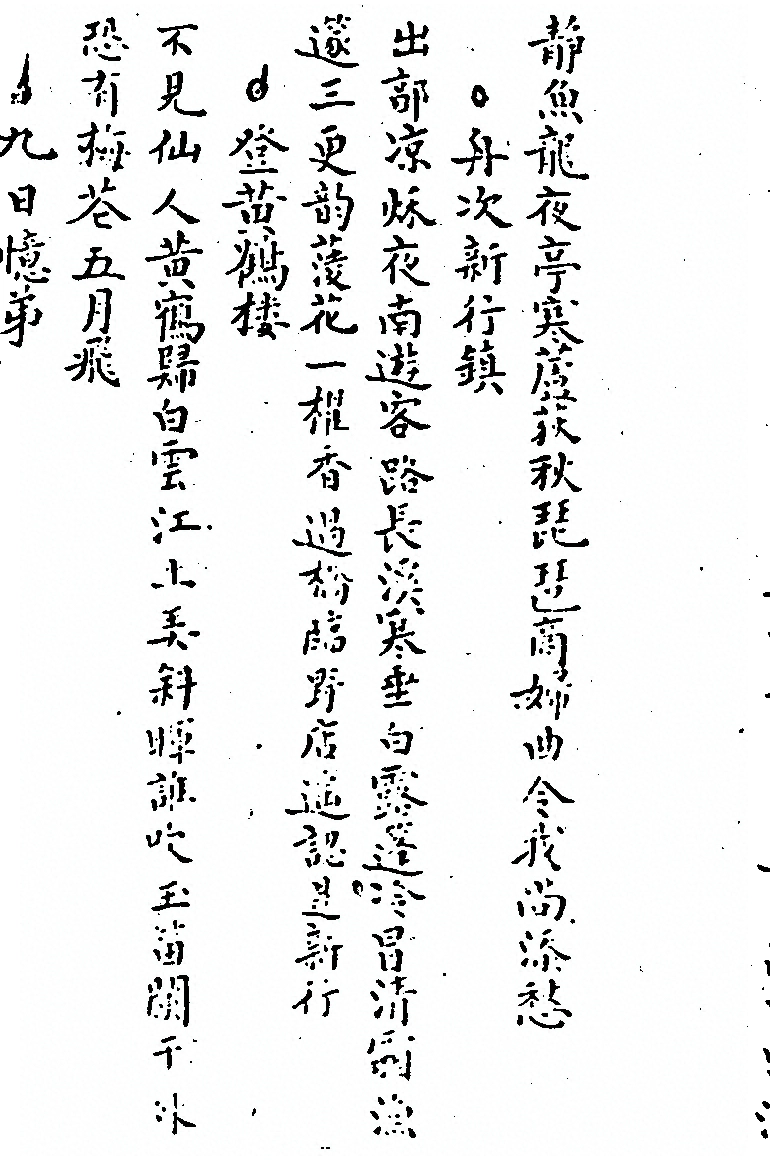 静魚龍夜亭寒蘆荻秋琵琶商婦曲令我尚添愁
舟次新行鎮
出部凉秌夜南遊客路長溪寒垂白露蓬冷冒清霜漁
邃三更韵菱花一櫂香過橋臨野店遥認是新行
登黄鶴楼
不見仙人黄鶴歸白雲江上美斜暉誰吹玉笛闌干外
恐有梅花五月飛
九日憶弟